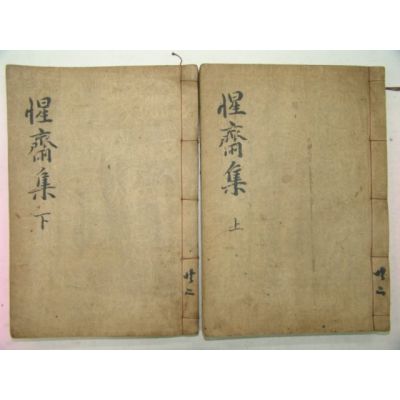 惺齋集
上
共二
惺齋集
下
共二